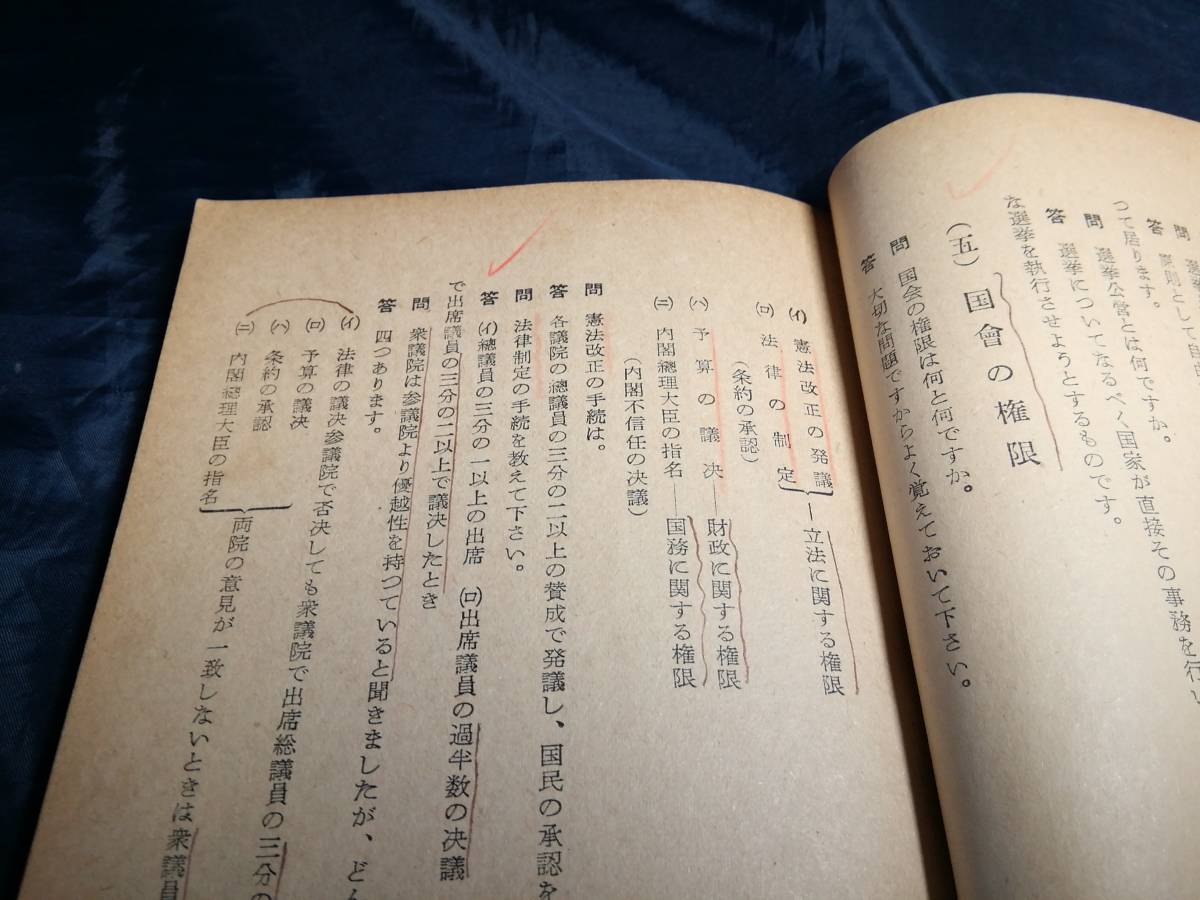 問 選挙
答 原則として
つて居ります。
問 選挙公営とは何ですか。
答 選挙についてなるべく国家が直接その事務を行い
な選挙を執行させようとするものです。
(五) 国會の権限
問 国会の権限は何と何ですか。
答 大切な問題ですからよく覚えておいて下さい。
(イ) 憲法改正の発議
(ロ) 法律の制定
(条約の承認)
立法に関する権限
(ハ) 予算の議決―財政に関する権限
(ニ) 内閣總理大臣の指名―国務に関する権限
(内閣不信任の決議)
問 憲法改正の手続は。
答 各議院の總議員の三分の二以上の賛成で発議し、国民の承認を
問 法律制定の手続を教えて下さい。
答 (イ)總議員の三分の一以上の出席 (ロ)出席議員の過半数の決議
で出席議員の三分の二以上で議決したとき
問 衆議院は参議院より優越性を持つていると聞きましたが、ど
答 四つあります。
(イ) 法律の議決参議院で否決しても衆議院で出席総議員の三分の
(ロ) 予算の議決
(ハ) 条約の承認
(ニ) 内閣總理大臣の指名
両院の意見が一致しないときは衆議